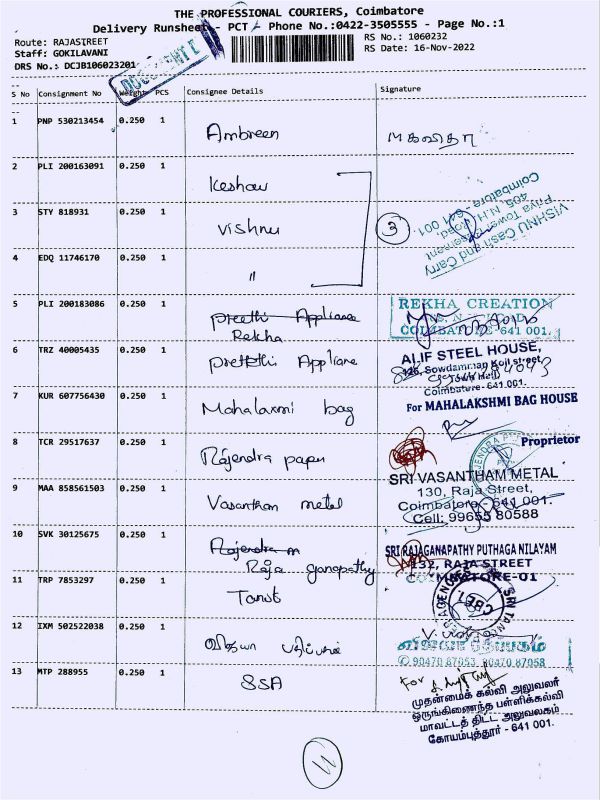 THE PROFESSIONAL COURIERS, Coimbatore
Delivery Runsheet - PCT - Phone No.:0422-3505555 - Page No.:1
Route: RAJASTREET
Staff: GOKILAVANI
DRS No.: DCJB106023201
RS No.: 1060232
RS Date: 16-Nov-2022
S No Consignment No Weight PCS Consignee Details Signature
1 PNP 530213454 0.250 1 Ambreen
2 PLI 200163091 0.250 1 Keshav
3 STY 818931 0.250 1 Vishnu 3
VISHNU Cash and Carry
Priya Towers Basement
405, N.H. Road
Coimbatore - 641 001
4 EDQ 11746170 0.250 1 "
5 PLI 200183086 0.250 1 Preethi Appliance
Rekha
REKHA CREATION
COIMBATORE-641 001.
6 TRZ 40005435 0.250 1 Appliane
ALIF STEEL HOUSE,
126, Sowdamman Koil street,
Town Hall
Coimbatore- 641 001.
7 KUR 607756430 0.250 1 Mahalaxmi bag
For MAHALAKSHMI BAG HOUSE
Proprietor
8 TCR 29517637 0.250 1 Rajendra paper
9 MAA 858561503 0.250 1 Vasanthan metal
SRI VASANTHAM METAL
130, Raja Street,
Coimbatore - 641 001.
Cell: 99655 80588
10 SVK 30125675 0.250 1 Rajendra m
Raja ganapathy
SRI RAJAGANAPATHY PUTHAGA NILAYAM
132, RAJA STREET
COIMBATORE-01
11 TRP 7853297 0.250 1 Tanit
CBE-1
12 IXM 502522038 0.250 1 விஜயா பதிப்பகம்
விஜயா பதிப்பகம்
90470 87053, 90470 87058
13 MTP 288955 0.250 1 SSA
For
முதன்மைக் கல்வி அலுவலர்
ஒருங்கிணைந்த பள்ளிக்கல்வி
மாவட்டத் திட்ட அலுவலகம்
கோயம்புத்தூர் - 641 001.
11